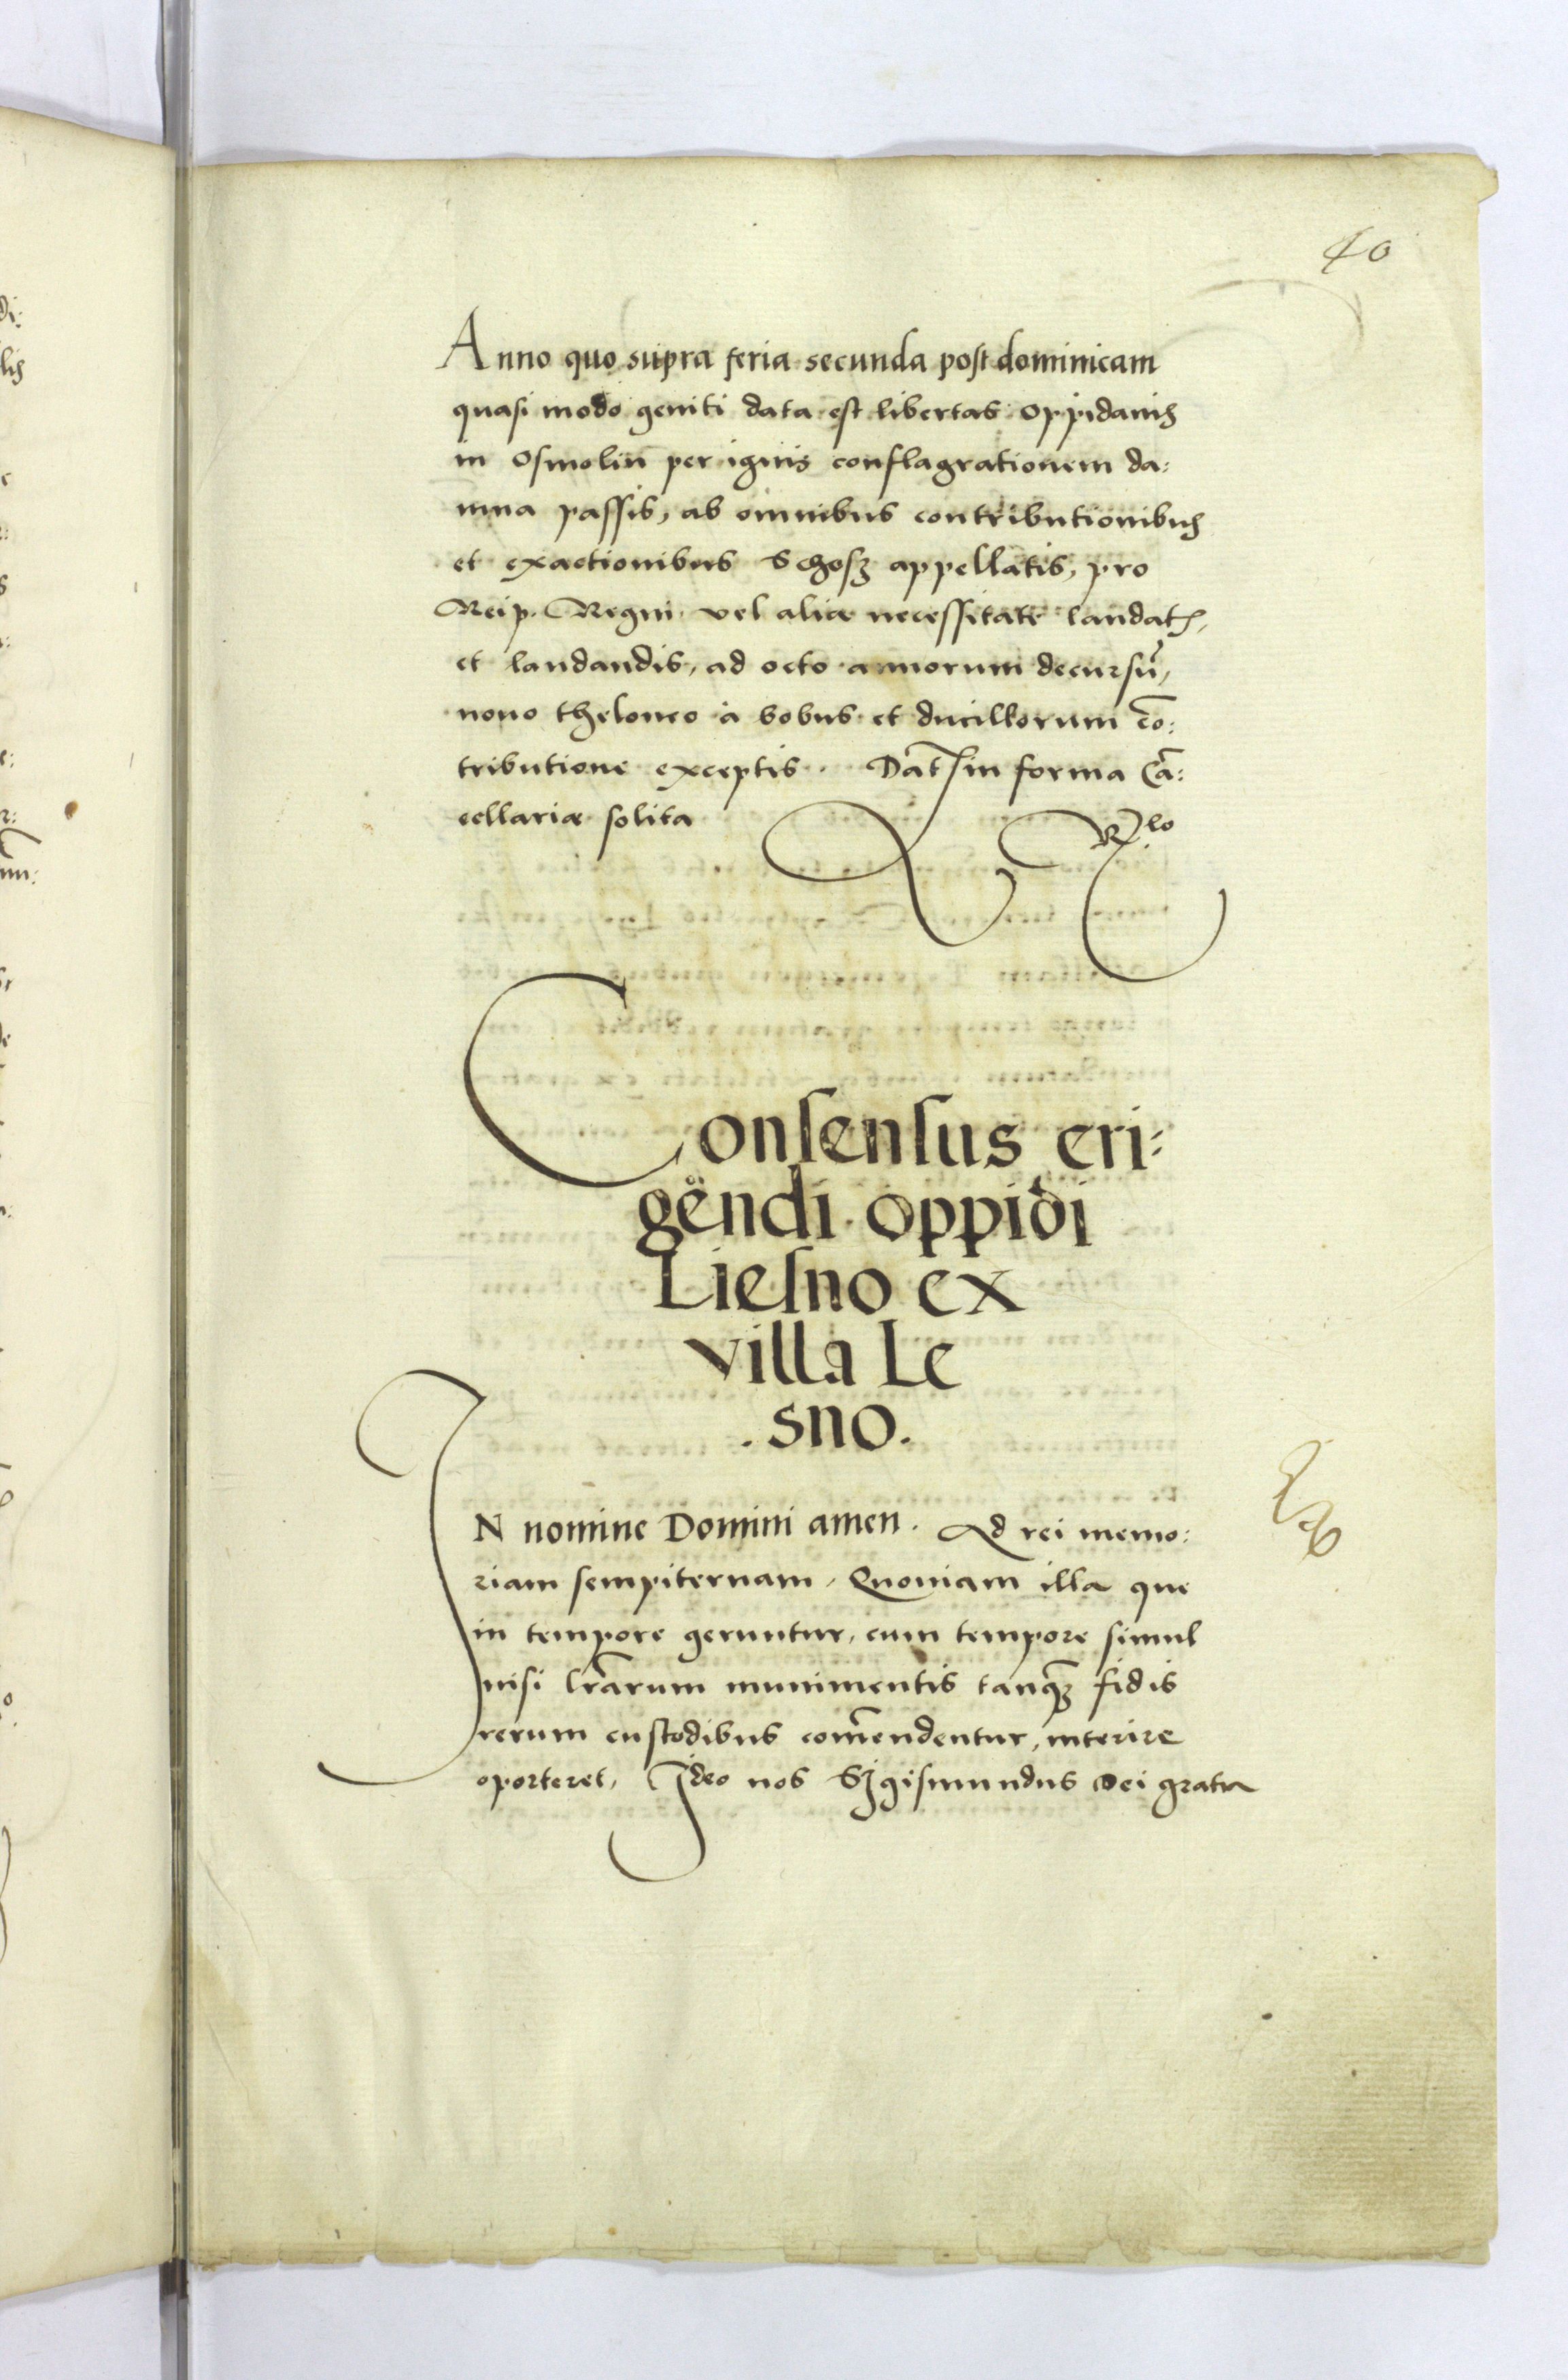 40
Anno quo supra feria secunda post dominicam
quasi modo geniti data est libertas oppidanis
in Osmolin per ignis conflagrationem da:
mna passis, ab omnibus contributionibus
et exactionibus Schosz appellatis, pro
Reip. Regni vel aliæ necessitate laudat,
et laudandis, ad octo annorum decursū,
nouo theloneo à bobus et ducillorum cō:
tributione exceptis. Dat in forma Cā:
cellariæ solita
Rlo
Consensus eri:
gendi oppidi
Liesno ex
villa Le
.sno.
IN nomine Domini amen. Ad rei memo:
riam sempiternam, Quoniam illa que
in tempore geruntur, cum tempore simul
nisi lr̄arum munimentis tanqȝ fidis
rerum custodibus com̄endentur, interire
oporteret, Ideo nos Sigismundus Dei gratia